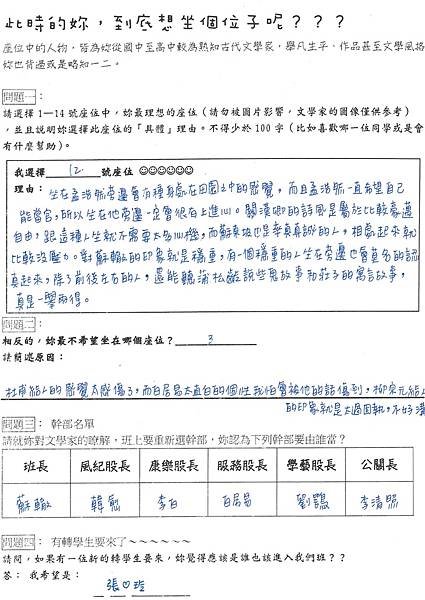 此時的妳，到底想坐個位子呢？？？
座位中的人物，皆為妳從國中至高中較為熟知古代文學家，舉凡生平、作品甚至文學風格
妳也背過或是略知一二。
問題一：
請選擇 1—14 號座位中，妳最理想的座位（請勿被圖片影響，文學家的圖像僅供參考）
，並且說明妳選擇此座位的『具體』理由。不得少於 100 字（比如喜歡哪一位同學或是會
有什麼幫助）。
我選擇 12 號座位☺☺☺☺☺☺
理由：坐在孟浩然旁邊會有種身處在田園之中的感覺，而且孟浩然一直希望自己
能當官，所以坐在他旁邊一定會很有上進心。關漢卿的詩風是屬於比較豪邁
自由，跟這種人坐就不需要太多心機，而蘇東坡也是率真真誠的人，相處起來就
比較沒壓力。對蘇轍的印象就是穩重，有一個穩重的人坐在旁邊也會莫名的認
真起來，除了前後左右的人，還能聽蒲松齡說些鬼故事和莊子的寓言故事，
真是一舉兩得。
問題二：
相反的，妳最不希望坐在哪個座位？ 3
請簡述原因：
杜甫給人的感覺太感傷了，而白居易太直白的個性我怕會被他的話傷到，柳宗元給人
的印象就是太過固執，不好溝
問題三： 幹部名單
請就妳對文學家的瞭解，班上要重新選幹部，妳認為下列幹部要由誰當？
班長 風紀股長 康樂股長 服務股長 學藝股長 公關長
蘇轍 韓愈 李白 白居易 劉鶚 李清照
問題四： 有轉學生要來了～～～～～～
請問，如果有一位新的轉學生要來，妳覺得應該是誰也該進入我們班？？
答： 我希望是： 張♡